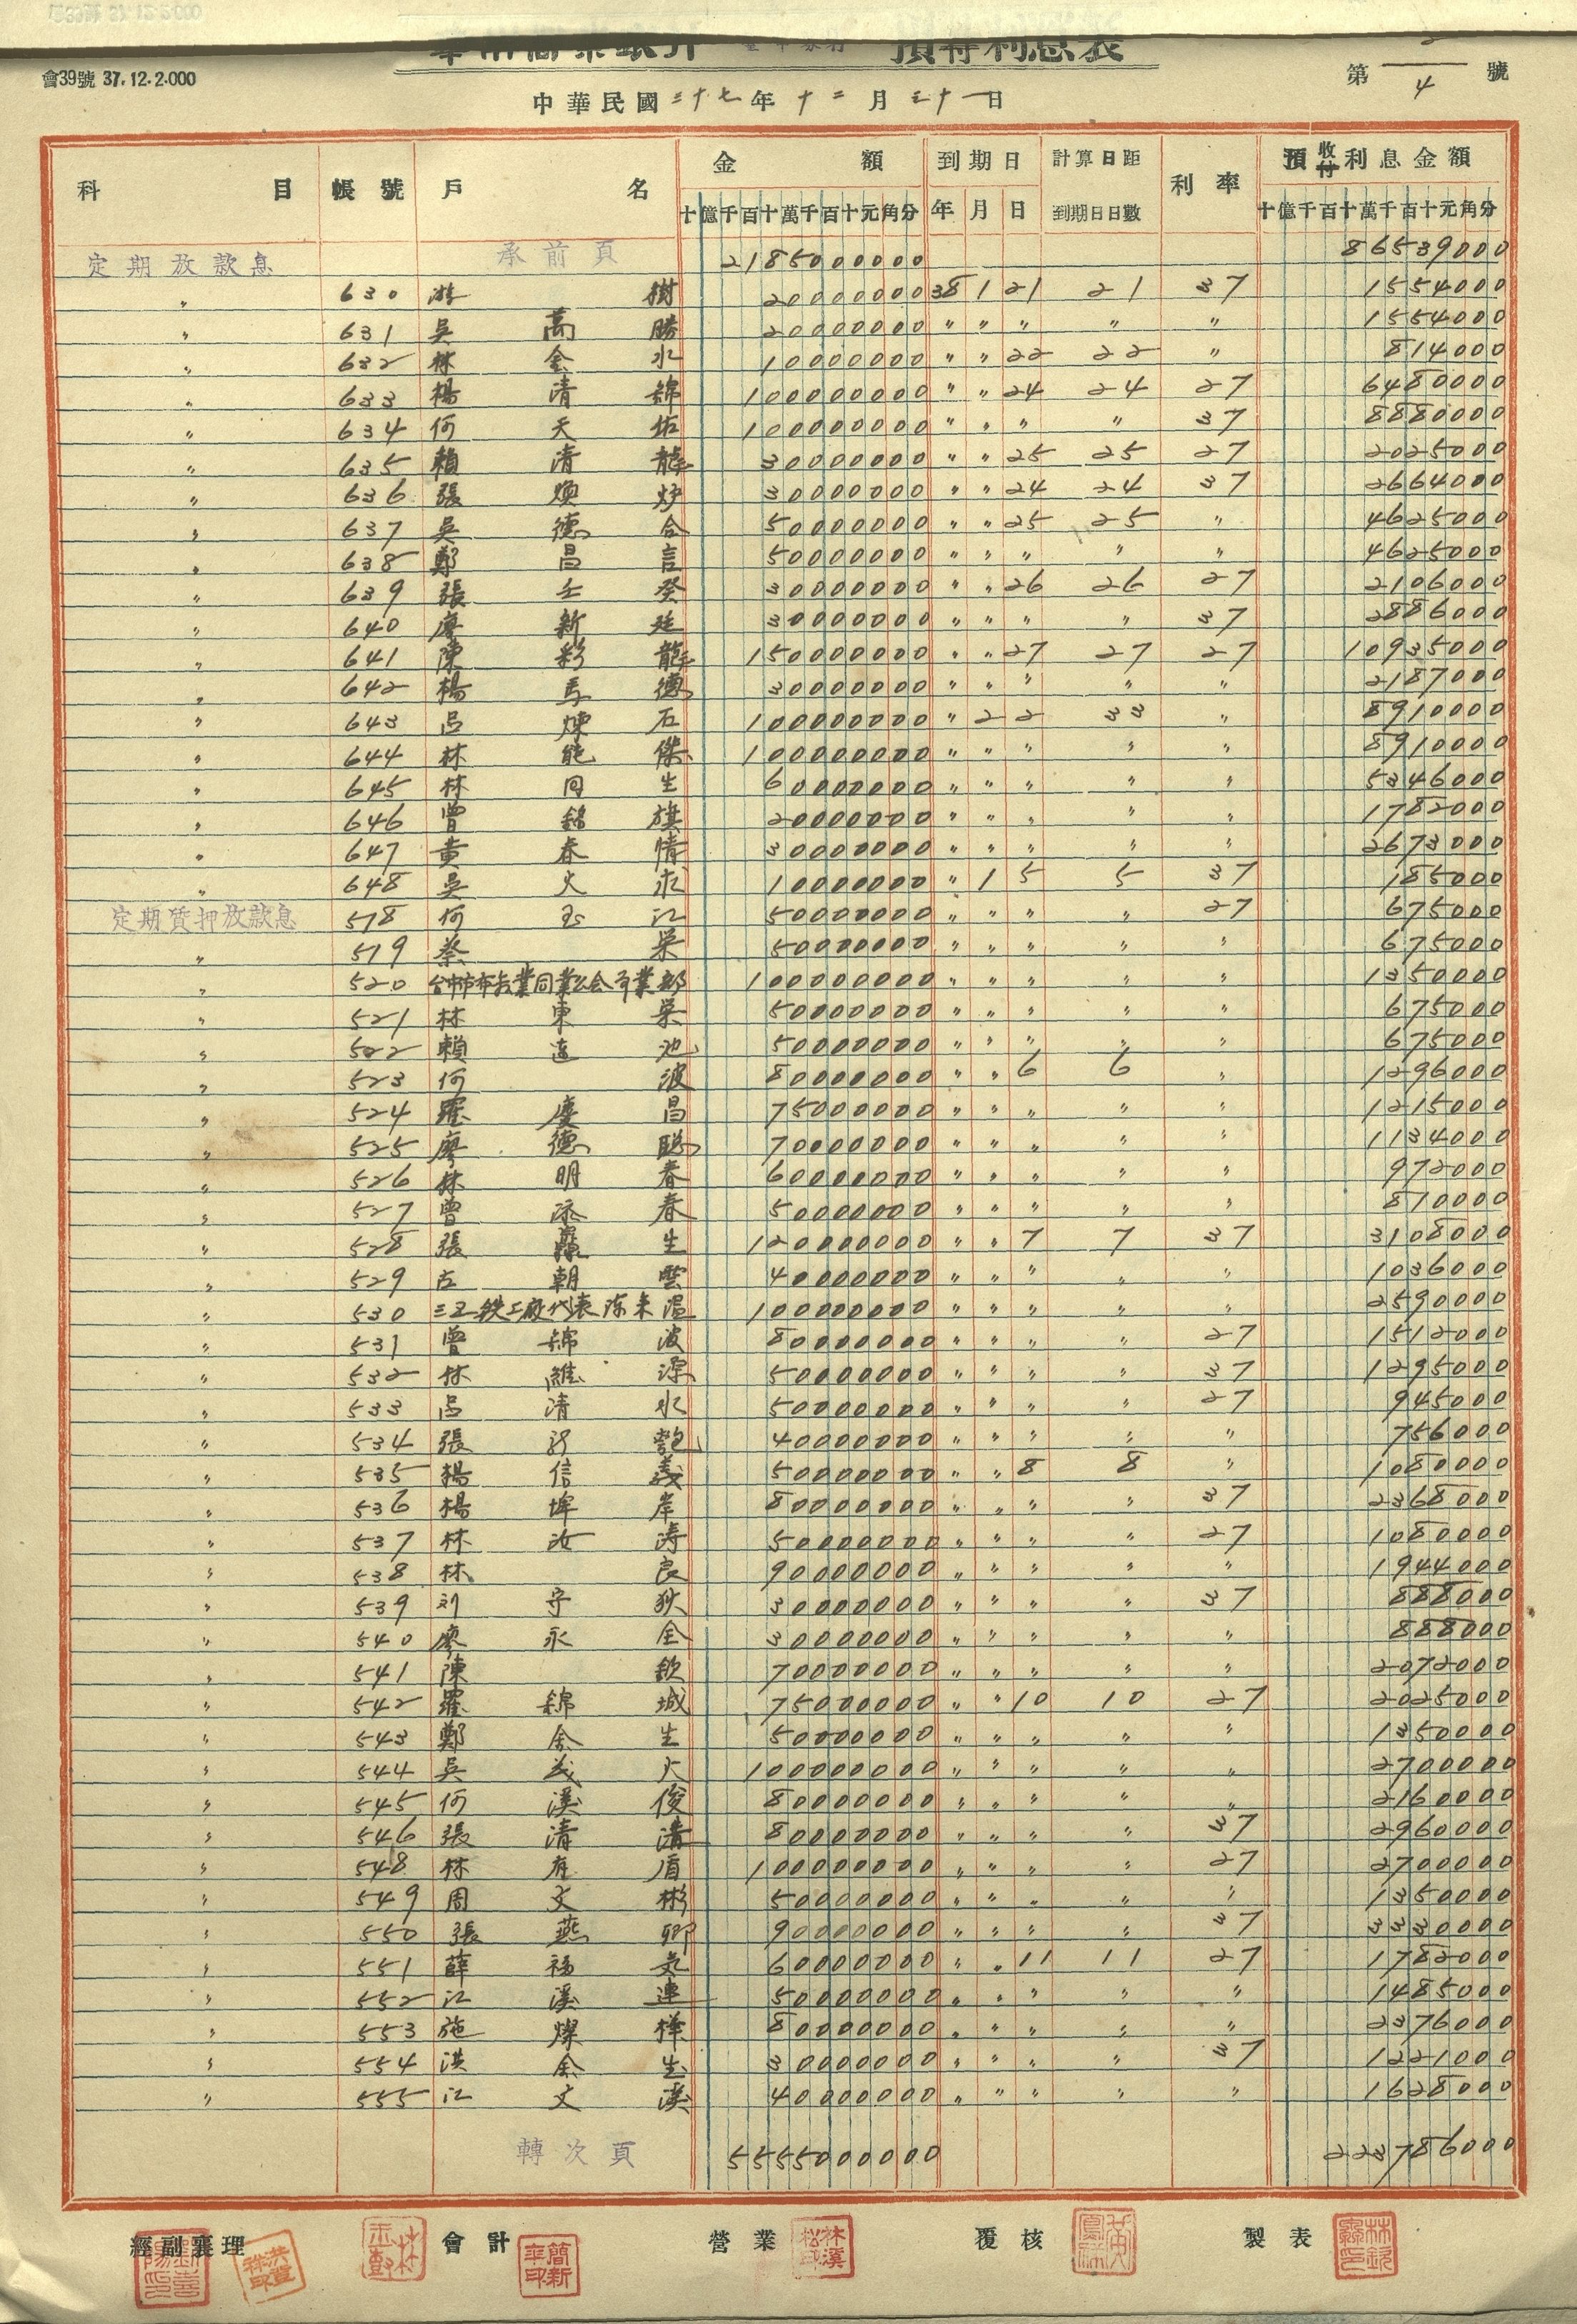 會39號 37.12.2.000
預得利息表
第 4 號
中華民國三十七年十二月三十一日
科目 帳號 戶名 金額 到期日 計算日距到期日日數 利率 預收付利息金額
十億千百十萬千百十元角分 年 月 日 十億千百十萬千百十元角分
定期放款息 承前頁 21850000000 86539000
〃 630 游樹 20000000 38 1 21 21 37 1554000
〃 631 吳萬勝 20000000 〃 〃 〃 〃 〃 1554000
〃 632 林金水 10000000 〃 〃 22 22 〃 814000
〃 633 楊清錦 100000000 〃 〃 24 24 27 6480000
〃 634 何天佑 100000000 〃 〃 〃 〃 37 8880000
〃 635 賴清龍 30000000 〃 〃 25 25 27 2025000
〃 636 張煥炉 30000000 〃 〃 24 24 37 2664000
〃 637 吳德合 50000000 〃 〃 25 25 〃 4625000
〃 638 鄭昌言 50000000 〃 〃 〃 〃 〃 4625000
〃 639 張壬癸 30000000 〃 〃 26 26 27 2106000
〃 640 廖新廷 30000000 〃 〃 〃 〃 37 2886000
〃 641 陳彩龍 150000000 〃 〃 27 27 27 10935000
〃 642 楊馬德 30000000 〃 〃 〃 〃 〃 2187000
〃 643 呂煉石 100000000 〃 2 2 33 〃 8910000
〃 644 林能傑 100000000 〃 〃 〃 〃 〃 8910000
〃 645 林同生 60000000 〃 〃 〃 〃 〃 5346000
〃 646 曾銘旗 20000000 〃 〃 〃 〃 〃 1782000
〃 647 黃春情 30000000 〃 〃 〃 〃 〃 2673000
〃 648 吳火求 10000000 〃 1 5 5 37 185000
定期質押放款息 518 何玉江 50000000 〃 〃 〃 〃 27 675000
〃 519 蔡荣 50000000 〃 〃 〃 〃 〃 675000
〃 520 台中市布商業同業公会 業部 100000000 〃 〃 〃 〃 〃 1350000
〃 521 林東荣 50000000 〃 〃 〃 〃 〃 675000
〃 522 賴遠池 50000000 〃 〃 〃 〃 〃 675000
〃 523 何波 80000000 〃 〃 6 6 〃 1296000
〃 524 羅慶昌 75000000 〃 〃 〃 〃 〃 1215000
〃 525 廖德聰 70000000 〃 〃 〃 〃 〃 1134000
〃 526 林明春 60000000 〃 〃 〃 〃 〃 972000
〃 527 曾添春 50000000 〃 〃 〃 〃 〃 810000
〃 528 張羅生 120000000 〃 〃 7 7 37 3108000
〃 529 古朝雲 40000000 〃 〃 〃 〃 〃 1036000
〃 530 三五鉄工廠代表陈来温 100000000 〃 〃 〃 〃 〃 2590000
〃 531 曾錦波 80000000 〃 〃 〃 〃 27 1512000
〃 532 林維源 50000000 〃 〃 〃 〃 37 1295000
〃 533 呂清水 50000000 〃 〃 〃 〃 27 945000
〃 534 張 40000000 〃 〃 〃 〃 〃 756000
〃 535 楊信義 50000000 〃 〃 8 8 〃 1080000
〃 536 楊埤岸 80000000 〃 〃 〃 〃 37 2368000
〃 537 林汝涛 50000000 〃 〃 〃 〃 27 1080000
〃 538 林良 90000000 〃 〃 〃 〃 〃 1944000
〃 539 刘守狄 30000000 〃 〃 〃 〃 37 888000
〃 540 廖永全 30000000 〃 〃 〃 〃 〃 888000
〃 541 陳欽 70000000 〃 〃 〃 〃 〃 2072000
〃 542 羅錦城 75000000 〃 〃 10 10 27 2025000
〃 543 鄭金生 50000000 〃 〃 〃 〃 〃 1350000
〃 544 吳茂火 100000000 〃 〃 〃 〃 〃 2700000
〃 545 何溪俊 80000000 〃 〃 〃 〃 〃 2160000
〃 546 張清溝 80000000 〃 〃 〃 〃 37 2960000
〃 548 林有眉 100000000 〃 〃 〃 〃 27 2700000
〃 549 周文彬 50000000 〃 〃 〃 〃 〃 1350000
〃 550 張燕卿 90000000 〃 〃 〃 〃 37 3330000
〃 551 薛福 60000000 〃 〃 11 11 27 1782000
〃 552 江溪連 50000000 〃 〃 〃 〃 〃 1485000
〃 553 施燦樺 80000000 〃 〃 〃 〃 〃 2376000
〃 554 洪金生 30000000 〃 〃 〃 〃 37 1221000
〃 555 江文溪 40000000 〃 〃 〃 〃 〃 1628000
轉次頁 55550000000 223786000
經副襄理 會計 營業 覆核 製表